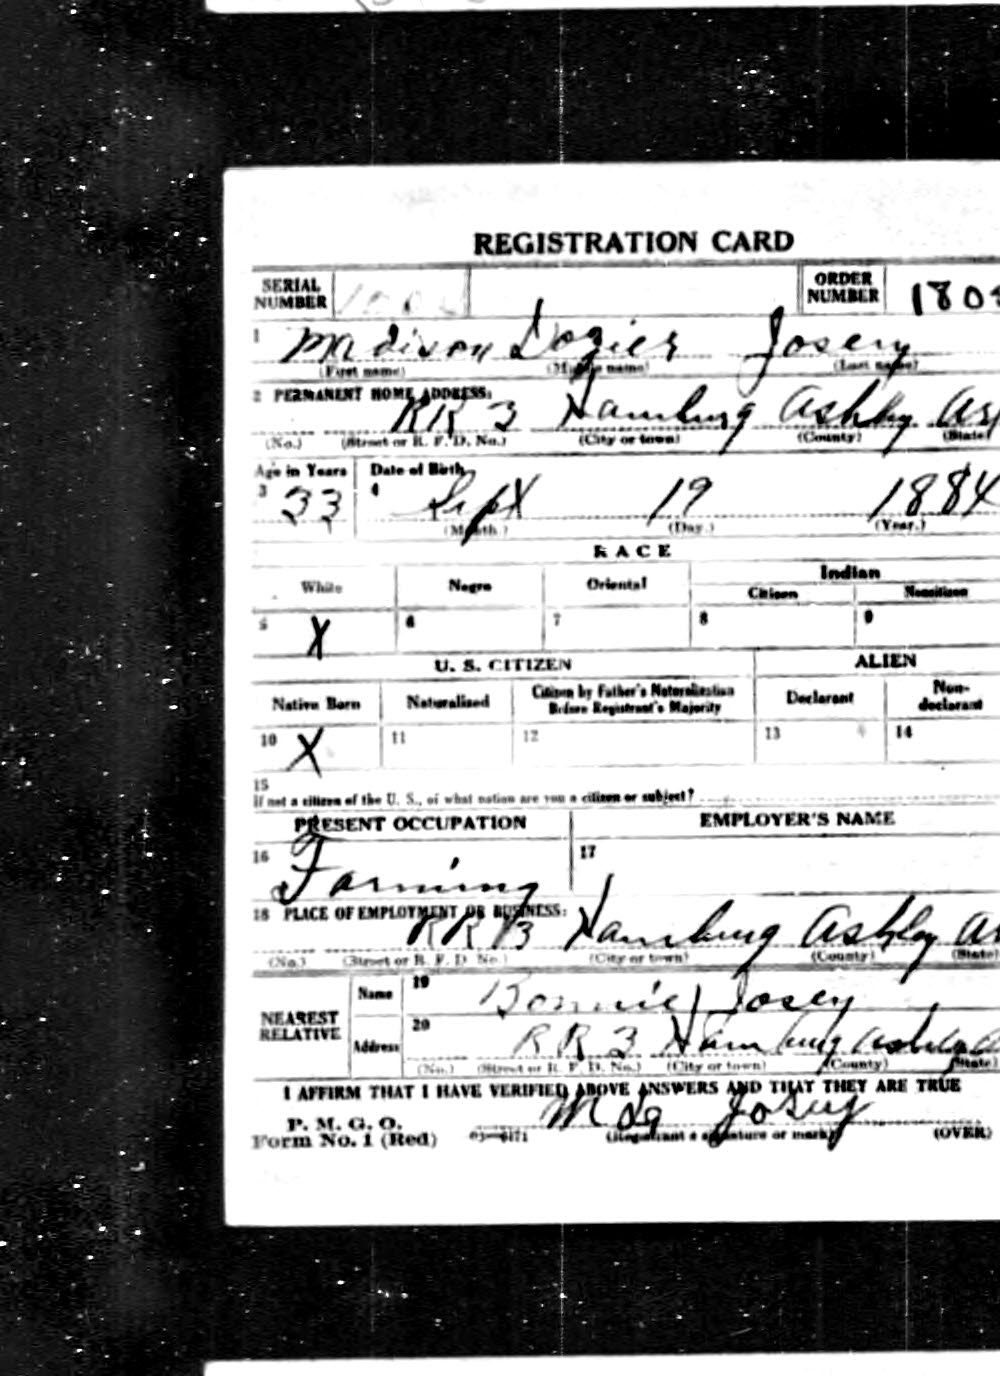 REGISTRATION CARD
SERIAL NUMBER
ORDER NUMBER 180
1 Madison Dozier Josey
(First name) (Middle name) (Last name)
2 PERMANENT HOME ADDRESS:
RR 3 Hamburg Ashley Ar
(No.) (Street or R. F. D. No.) (City or town) (County) (State)
Age in Years Date of Birth
3 33 4 Sept 19 1884
(Month.) (Day.) (Year.)
RACE
White Negro Oriental Indian
Citizen Noncitizen
5 X 6 7 8 9
U. S. CITIZEN ALIEN
Native Born Naturalized Citizen by Father's Naturalization Before Registrant's Majority Declarant Non-declarant
10 X 11 12 13 14
15
If not a citizen of the U. S., of what nation are you a citizen or subject?
PRESENT OCCUPATION EMPLOYER'S NAME
16 Farming 17
18 PLACE OF EMPLOYMENT OR BUSINESS:
RR 3 Hamburg Ashley Ar
(No.) (Street or R. F. D. No.) (City or town) (County) (State)
NEAREST RELATIVE
Name 19 Bonnie Josey
Address 20 RR 3 Hamburg Ashley
(No.) (Street or R. F. D. No.) (City or town) (County) (State)
I AFFIRM THAT I HAVE VERIFIED ABOVE ANSWERS AND THAT THEY ARE TRUE
P. M. G. O.
Form No. 1 (Red) 03—6171 Josey
(Registrant's signature or mark) (OVER)